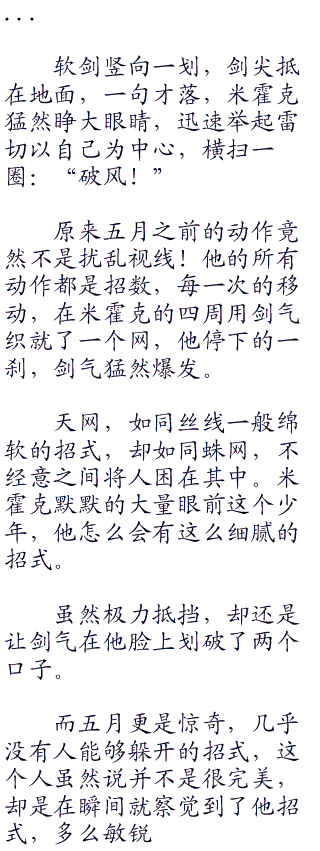 ...
软剑竖向一划，剑尖抵
在地面，一句才落，米霍克
猛然睁大眼睛，迅速举起雷
切以自己为中心，横扫一
圈：“破风！”
原来五月之前的动作竟
然不是扰乱视线！他的所有
动作都是招数，每一次的移
动，在米霍克的四周用剑气
织就了一个网，他停下的一
刹，剑气猛然爆发。
天网，如同丝线一般绵
软的招式，却如同蛛网，不
经意之间将人困在其中。米
霍克默默的大量眼前这个少
年，他怎么会有这么细腻的
招式。
虽然极力抵挡，却还是
让剑气在他脸上划破了两个
口子。
而五月更是惊奇，几乎
没有人能够躲开的招式，这
个人虽然说并不是很完美，
却是在瞬间就察觉到了他招
式，多么敏锐